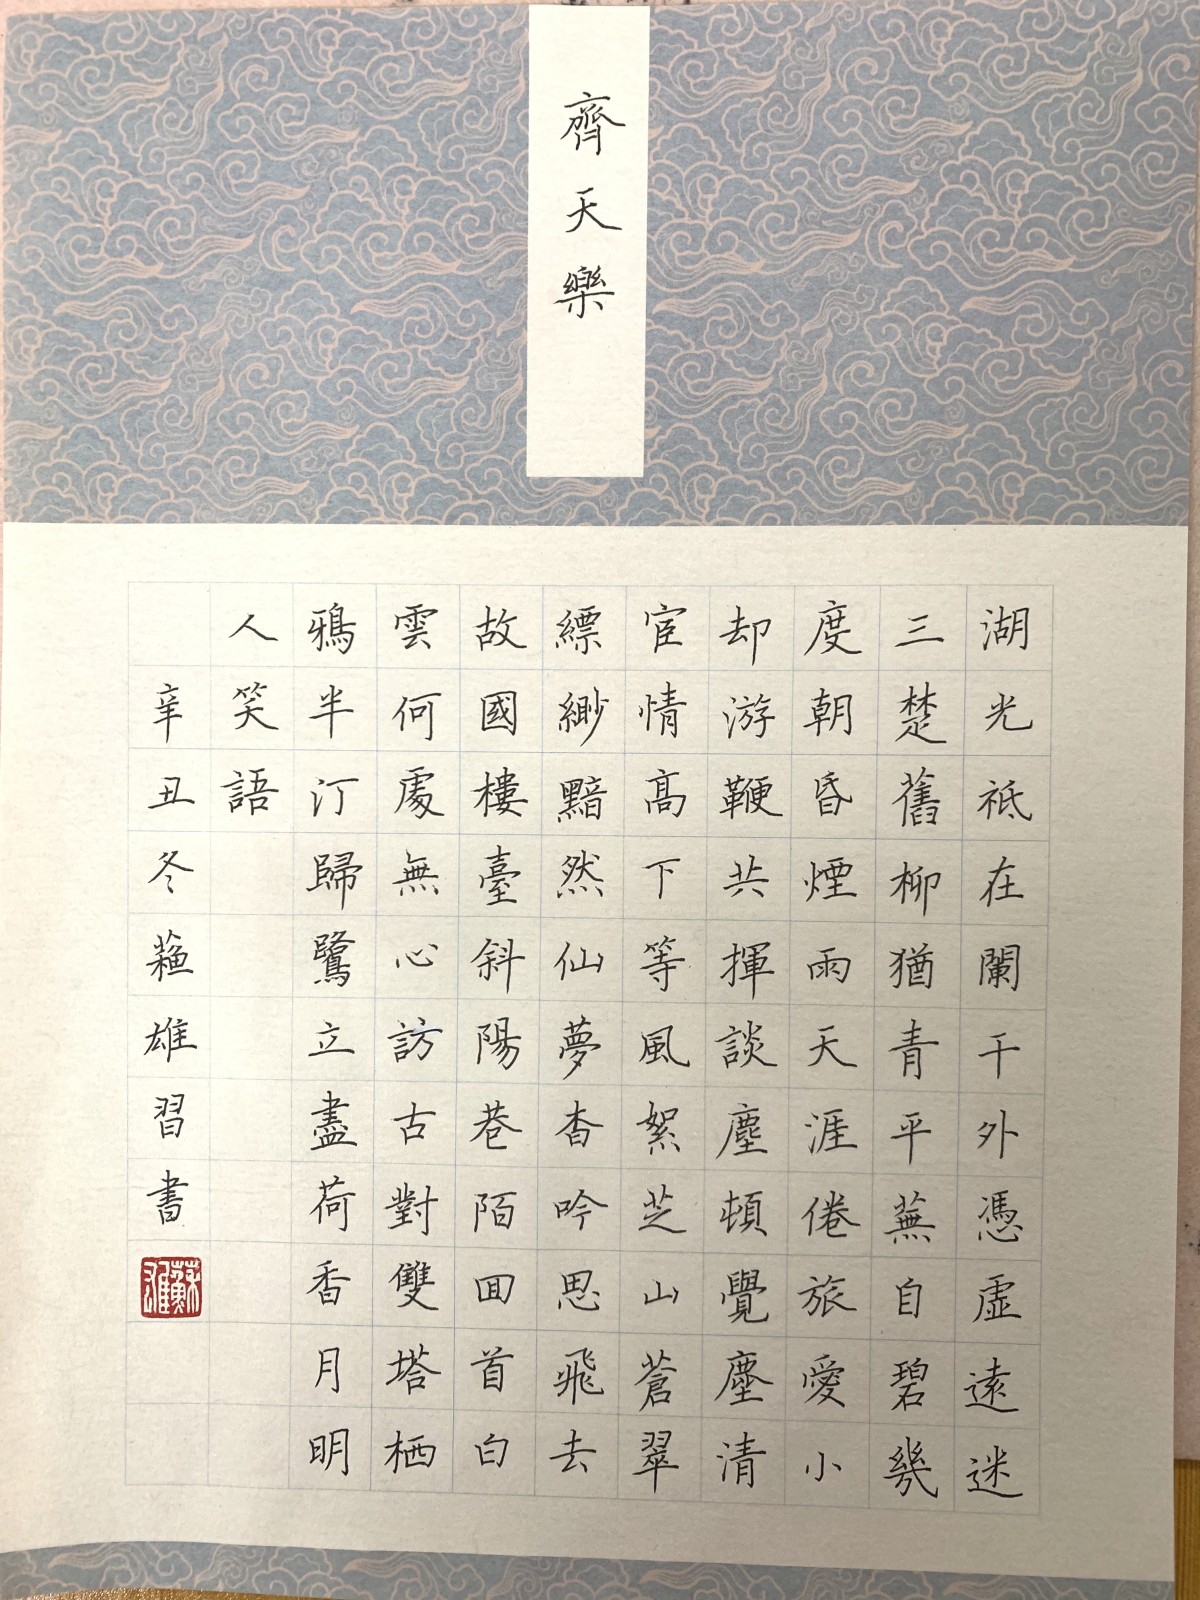 齊天樂
湖光祗在闌干外憑虛遠迷
三楚舊柳猶青平蕪自碧幾
度朝昏煙雨天涯倦旅愛小
却游鞭共揮談麈頓覺塵清
宦情高下等風絮芝山蒼翠
縹緲黯然仙夢杳吟思飛去
故國樓臺斜陽巷陌回首白
雲何處無心訪古對雙塔栖
鴉半汀歸鷺立盡荷香月明
人笑語
辛丑冬蘓雄習書
蘇雄